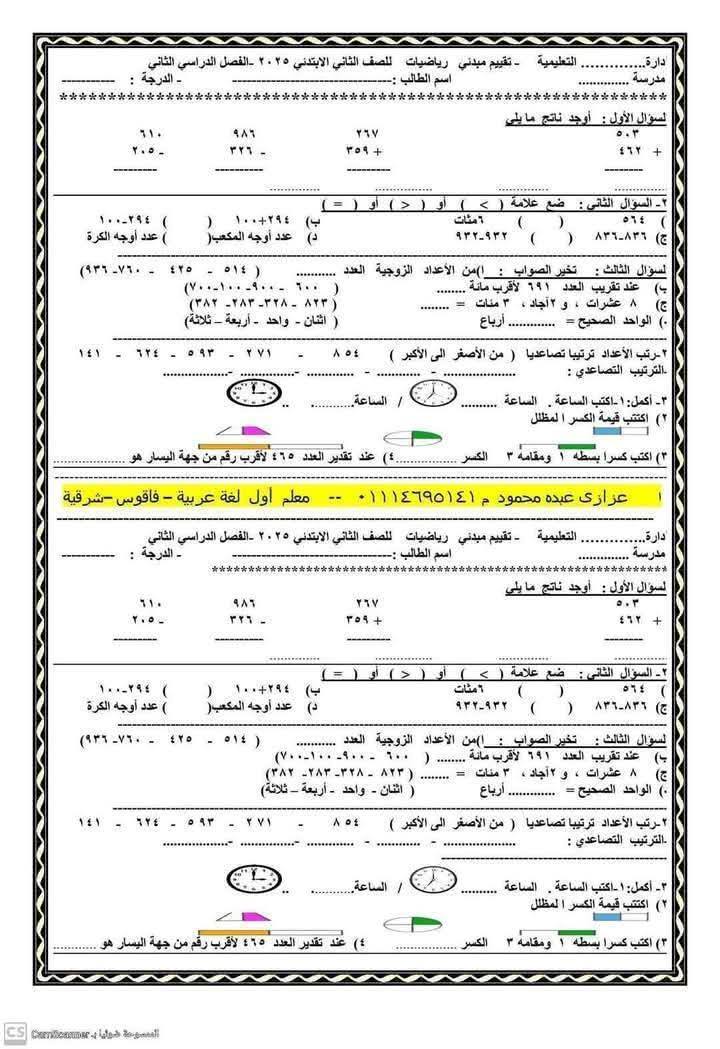 دارة.............. التعليمية - تقييم مبدئي رياضيات للصف الثاني الابتدئي ٢٠٢٥ -الفصل الدراسي الثاني
مدرسة .............. اسم الطالب :------------------------------ - الدرجة : -----------
لسؤال الأول : أوجد ناتج ما يلي
٥٠٣ ٢٦٧ ٩٨٦ ٦١٠
+ ٤٦٢ + ٣٥٩ - ٣٢٦ - ٢٠٥
٢- السؤال الثاني : ضع علامة ( > ) أو ( < ) أو ( = )
) ٥٦٤ ( ) ٦مئات ب) ٢٩٤+١٠٠ ( ) ٢٩٤-١٠٠
ج) ٨٣٦-٨٣٦ ( ) ٩٣٢-٩٣٢ د) عدد أوجه المكعب( ) عدد أوجه الكرة
لسؤال الثالث : تخير الصواب : ا)من الأعداد الزوجية العدد ........... ( ٥١٤ - ٤٢٥ - ٧٦٠- ٩٣٦)
ب) عند تقريب العدد ٦٩١ لأقرب مائة ........ ( ٦٠٠ - ٩٠٠-١٠٠-٧٠٠)
ج) ٨ عشرات ، و ٢آحاد ، ٣ مئات = ........ ( ٨٢٣ - ٣٢٨- ٢٨٣- ٣٨٢)
.) الواحد الصحيح = ............. أرباع ( اثنان - واحد - أربعة – ثلاثة)
٢-رتب الأعداد ترتيبا تصاعديا ( من الأصغر الى الأكبر ) ٨٥٤ - ٢٧١ - ٥٩٣ - ٦٢٤ - ١٤١
.الترتيب التصاعدي : ................... - ............ - ............. -............... -..................
٣- أكمل:١-اكتب الساعة . الساعة .......... / الساعة........... ..
٢) اكتتب قيمة الكسر ا لمظلل
٣) اكتب كسرا بسطه ١ ومقامه ٣ الكسر .................٤) عند تقدير العدد ٤٦٥ لأقرب رقم من جهة اليسار هو ....................
ا عزازى عبده محمود م ٠١١١٤٦٩٥١٤١ -- معلم أول لغة عربية – فاقوس –شرقية
دارة.............. التعليمية - تقييم مبدئي رياضيات للصف الثاني الابتدئي ٢٠٢٥ -الفصل الدراسي الثاني
مدرسة .............. اسم الطالب :------------------------------ - الدرجة : -----------
لسؤال الأول : أوجد ناتج ما يلي
٥٠٣ ٢٦٧ ٩٨٦ ٦١٠
+ ٤٦٢ + ٣٥٩ - ٣٢٦ - ٢٠٥
٢- السؤال الثاني : ضع علامة ( > ) أو ( < ) أو ( = )
) ٥٦٤ ( ) ٦مئات ب) ٢٩٤+١٠٠ ( ) ٢٩٤-١٠٠
ج) ٨٣٦-٨٣٦ ( ) ٩٣٢-٩٣٢ د) عدد أوجه المكعب( ) عدد أوجه الكرة
لسؤال الثالث : تخير الصواب : ا)من الأعداد الزوجية العدد ........... ( ٥١٤ - ٤٢٥ - ٧٦٠- ٩٣٦)
ب) عند تقريب العدد ٦٩١ لأقرب مائة ........ ( ٦٠٠ - ٩٠٠-١٠٠-٧٠٠)
ج) ٨ عشرات ، و ٢آحاد ، ٣ مئات = ........ ( ٨٢٣ - ٣٢٨- ٢٨٣- ٣٨٢)
.) الواحد الصحيح = ............. أرباع ( اثنان - واحد - أربعة – ثلاثة)
٢-رتب الأعداد ترتيبا تصاعديا ( من الأصغر الى الأكبر ) ٨٥٤ - ٢٧١ - ٥٩٣ - ٦٢٤ - ١٤١
.الترتيب التصاعدي : ................... - ............ - ............. -............... -..................
٣- أكمل:١-اكتب الساعة . الساعة .......... / الساعة........... ..
٢) اكتتب قيمة الكسر ا لمظلل
٣) اكتب كسرا بسطه ١ ومقامه ٣ الكسر ................. ٤) عند تقدير العدد ٤٦٥ لأقرب رقم من جهة اليسار هو ............
CS CamScanner الممسوحة ضوئيا بـ